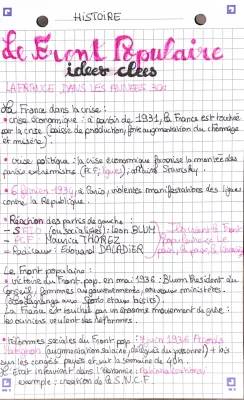 HISTOIRE
Le Front Populaire
idées clées
LA FRANCE DANS LES ANNÉES 30 :
La France dans la crise :
• crise économique : à partir de 1931, la France est touchée
par la crise (baisse de production, forte augmentation du chômage
et misère).
• crise politique : la crise économique favorise la montée des
partis extrémistes (PCF, ligues), affaire Stavisky.
• 6 février 1934, à Paris, violentes manifestations des ligues
contre la République.
• Réaction des partis de gauche :
- SFIO (ou socialistes) : Léon BLUM
- PCF : Maurice THOREZ
- Radicaux : Edouard DALADIER
Le Front populaire :
• victoire du Front pop. en mai 1936 : Blum Président du
Conseil, femmes au gouvernement, nouveaux ministères.
(Léo Lagrange aux sports et aux loisirs).
La France est touchée par un énorme mouvement de grève :
les ouvriers veulent des réformes.
• réformes sociales du Front pop. : 7 juin 1936 Accords
Matignon (augmentation salaire, délégués du personnel) + lois
sur les congés payés et sur la semaine de 40h.
L'État intervient dans l'économie : nationalisations
exemple : création de la S.N.C.F.